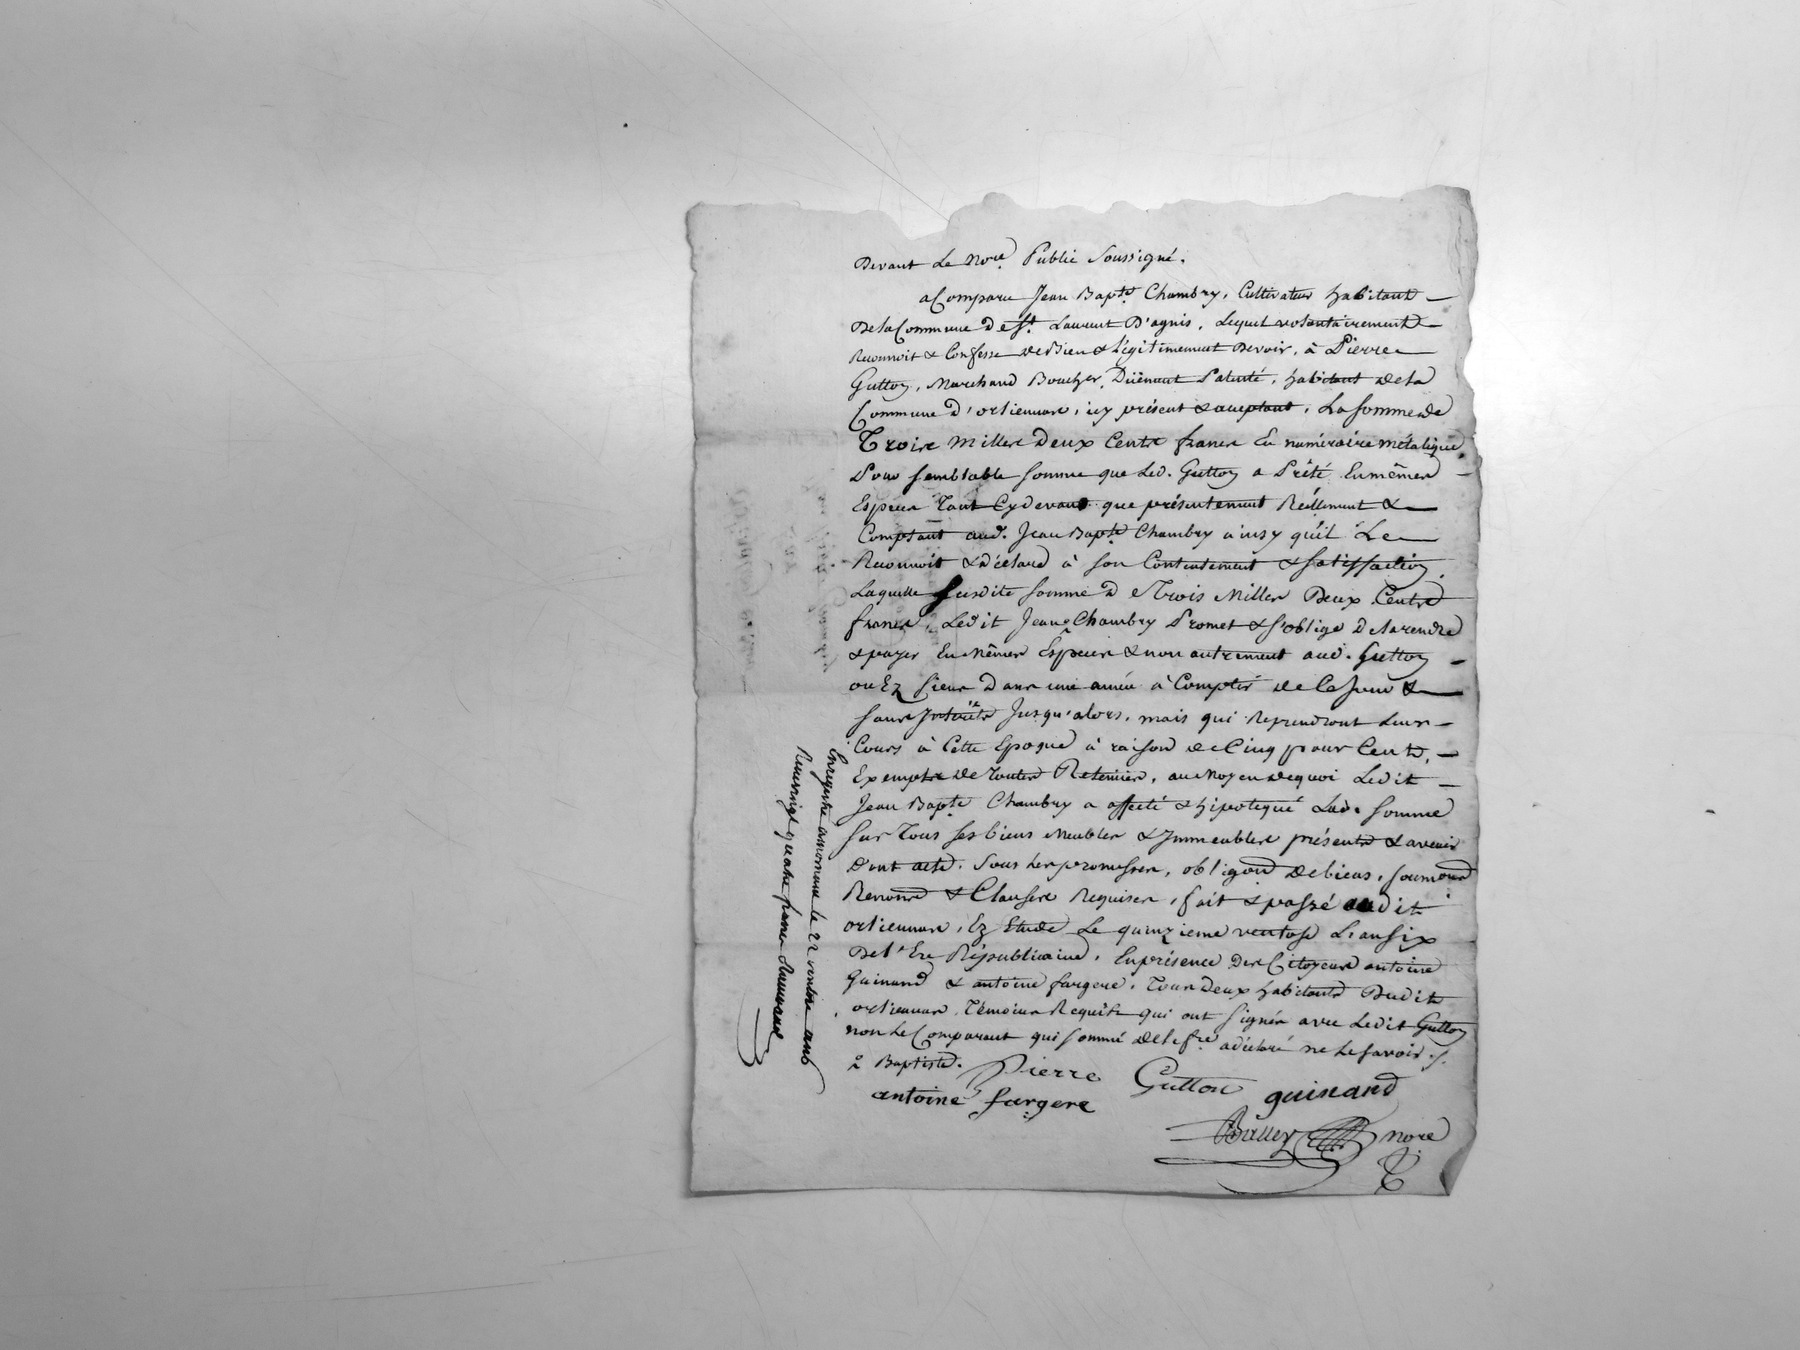 Devant Le no.re Public Soussigné.
a Comparu Jean Bap.te Chambry, Cultivateur habitant
De la Commune de S.t Laurent D'agnis, Lequel volontairement
Reconnoit & Confesse de Bien & Légitimement Devoir, à Pierre
Gutton, Marchand Boucher, Düement Patenté, habitant de la
Commune d'orliennas, icy présent & acceptant, La Somme de
Trois Milles Deux Cents francs En numéraire métalique,
Pour semblable somme que Led. Gutton a Prêté En mêmes
Espèces Tant Cydevant que présentement Réellement &
Comptant aud. Jean Bap.te Chambry ainsy qu'il Le
Reconnoit & déclare à son Contentement & satisfaction
Laquelle susdite somme de Trois Milles Deux Cents
francs, Ledit Jean 2 Chambry Promet & s'oblige de la rendre
& payer En Mêmes Espèces & non autrement aud. Gutton
ou Ez siens Dans une année à Compter de Ce Jour &
sans Intérêts Jusqu'alors, mais qui Reprendront Leur
Cours à Cette Epoque à raison de Cinq pour Cent,
Exempts de Toutes Retenues, au Moyen de quoi Ledit
Jean Bap.te Chambry a affecté & hipotequé Lad. somme
sur Tous ses biens Meubles & Immeubles présents & avenir
Dont acte. Sous Les promesses, obligaons de biens, soumons
Renons & Clauses Requises, fait & passé audit
orliennas, Ez Etude Le quinzieme ventose L'an six
De l'Ere Républicaine, En présence Des Citoyens antoine
Guinand & antoine fargere, Tous Deux habitants Dudit
orliennas, Témoins Requis qui ont signés avec Ledit Gutton
non Le Comparant qui sommé de le f.re a déclaré ne Le savoir.
2 Baptiste.
Pierre Gutton guinand
antoine fargere
nore
Enregistré a mornant le 22 ventose an 6
Reçu vingt quatre francs